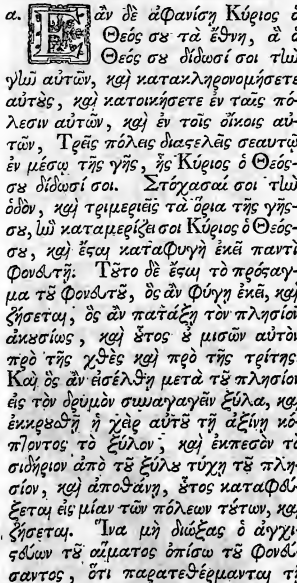 α. Ἐὰν δὲ ἀφανίσῃ Κύριος ὁ
Θεός σου τὰ ἔθνη, ἃ ὁ
Θεός σου δίδωσί σοι τὴν
γῆν αὐτῶν, καὶ κατακληρονομήσετε
αὐτοὺς, καὶ κατοικήσετε ἐν ταῖς πό-
λεσιν αὐτῶν, καὶ ἐν τοῖς οἴκοις αὐ-
τῶν, Τρεῖς πόλεις διαστελεῖς σεαυτῷ
ἐν μέσῳ τῆς γῆς, ἧς Κύριος ὁ Θεός-
σου δίδωσί σοι. Στόχασαί σοι τὴν
ὁδὸν, καὶ τριμεριεῖς τὰ ὅρια τῆς γῆς-
σου, ἣν καταμερίζει σοι Κύριος ὁ Θεός-
σου, καὶ ἔσται καταφυγὴ ἐκεῖ παντὶ
φονευτῇ. Τοῦτο δὲ ἔσται τὸ πρόσταγ-
μα τοῦ φονευτοῦ, ὃς ἂν φύγῃ ἐκεῖ, καὶ
ζήσεται, ὃς ἂν πατάξῃ τὸν πλησίον
ἀκουσίως, καὶ οὗτος οὐ μισῶν αὐτὸν
πρὸ τῆς χθὲς καὶ πρὸ τῆς τρίτης.
Καὶ ὃς ἂν εἰσέλθῃ μετὰ τοῦ πλησίον
εἰς τὸν δρυμὸν συναγαγεῖν ξύλα, καὶ
ἐκκρουσθῇ ἡ χεὶρ αὐτοῦ τῇ ἀξίνῃ κό-
πτοντος τὸ ξύλον, καὶ ἐκπεσὸν τὸ
σιδήριον ἀπὸ τοῦ ξύλου τύχῃ τοῦ πλη-
σίον, καὶ ἀποθάνῃ, οὗτος καταφεύ-
ξεται εἰς μίαν τῶν πόλεων τούτων, καὶ
ζήσεται. Ἵνα μὴ διώξας ὁ ἀγχι-
στεύων τοῦ αἵματος ὀπίσω τοῦ φονεύ-
σαντος, ὅτι παρατεθέρμανται τῇ